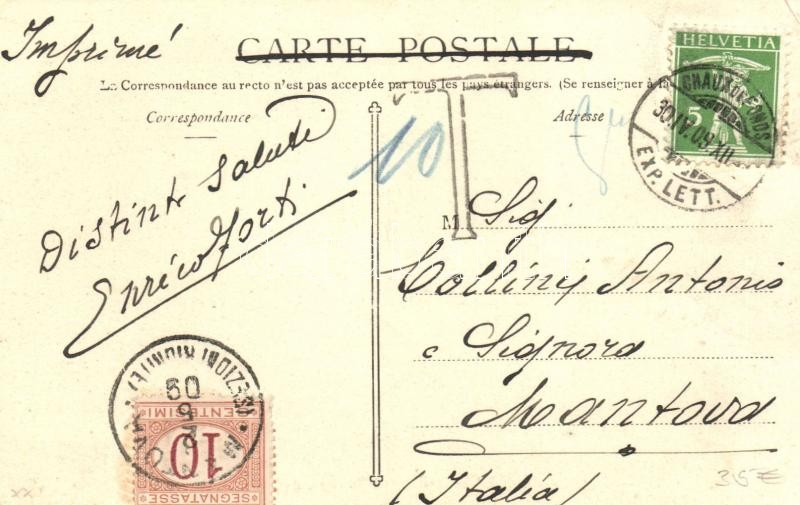 Imprimé
CARTE POSTALE
La Correspondance au recto n'est pas acceptée par tous les pays étrangers. (Se renseigner à la
Correspondance
Adresse
HELVETIA
5
CHAUX DE FONDS
30.IV.09.XII
EXP. LETT.
T
10
Distinti Saluti
Enrico Forti
M
Sig
Collini Antonio
e Signora
Mantova
(Italia)
MANTOVA
(SEZIONI RIUNITE)
09
10
CENTESIMI
SEGNATASSE
xx